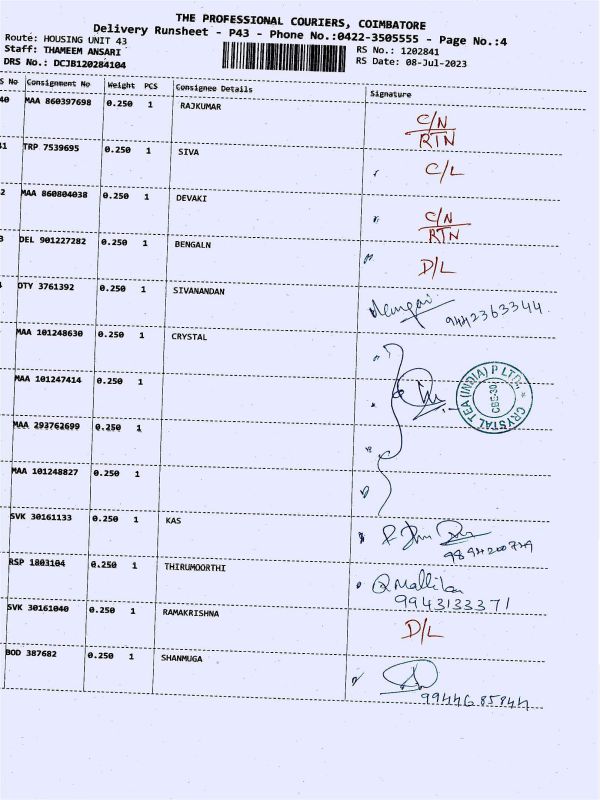 THE PROFESSIONAL COURIERS, COIMBATORE
Delivery Runsheet - P43 - Phone No.:0422-3505555 - Page No.:4
Route: HOUSING UNIT 43
Staff: THAMEEM ANSARI
DRS No.: DCJB120284104
RS No.: 1202841
RS Date: 08-Jul-2023
S No Consignment No Weight PCS Consignee Details Signature
40 MAA 860397698 0.250 1 RAJKUMAR C/N RTN
41 TRP 7539695 0.250 1 SIVA C/L
2 MAA 860804038 0.250 1 DEVAKI C/N RTN
3 DEL 901227282 0.250 1 BENGALN D/L
OTY 3761392 0.250 1 SIVANANDAN 9442363344
MAA 101248630 0.250 1 CRYSTAL
MAA 101247414 0.250 1
CRYSTAL TEA (INDIA) P LTD. * CBE-30
MAA 293762699 0.250 1
MAA 101248827 0.250 1
SVK 30161133 0.250 1 KAS
RSP 1803104 0.250 1 THIRUMOORTHI Mallika
9943133371
SVK 30161040 0.250 1 RAMAKRISHNA D/L
BOD 387682 0.250 1 SHANMUGA